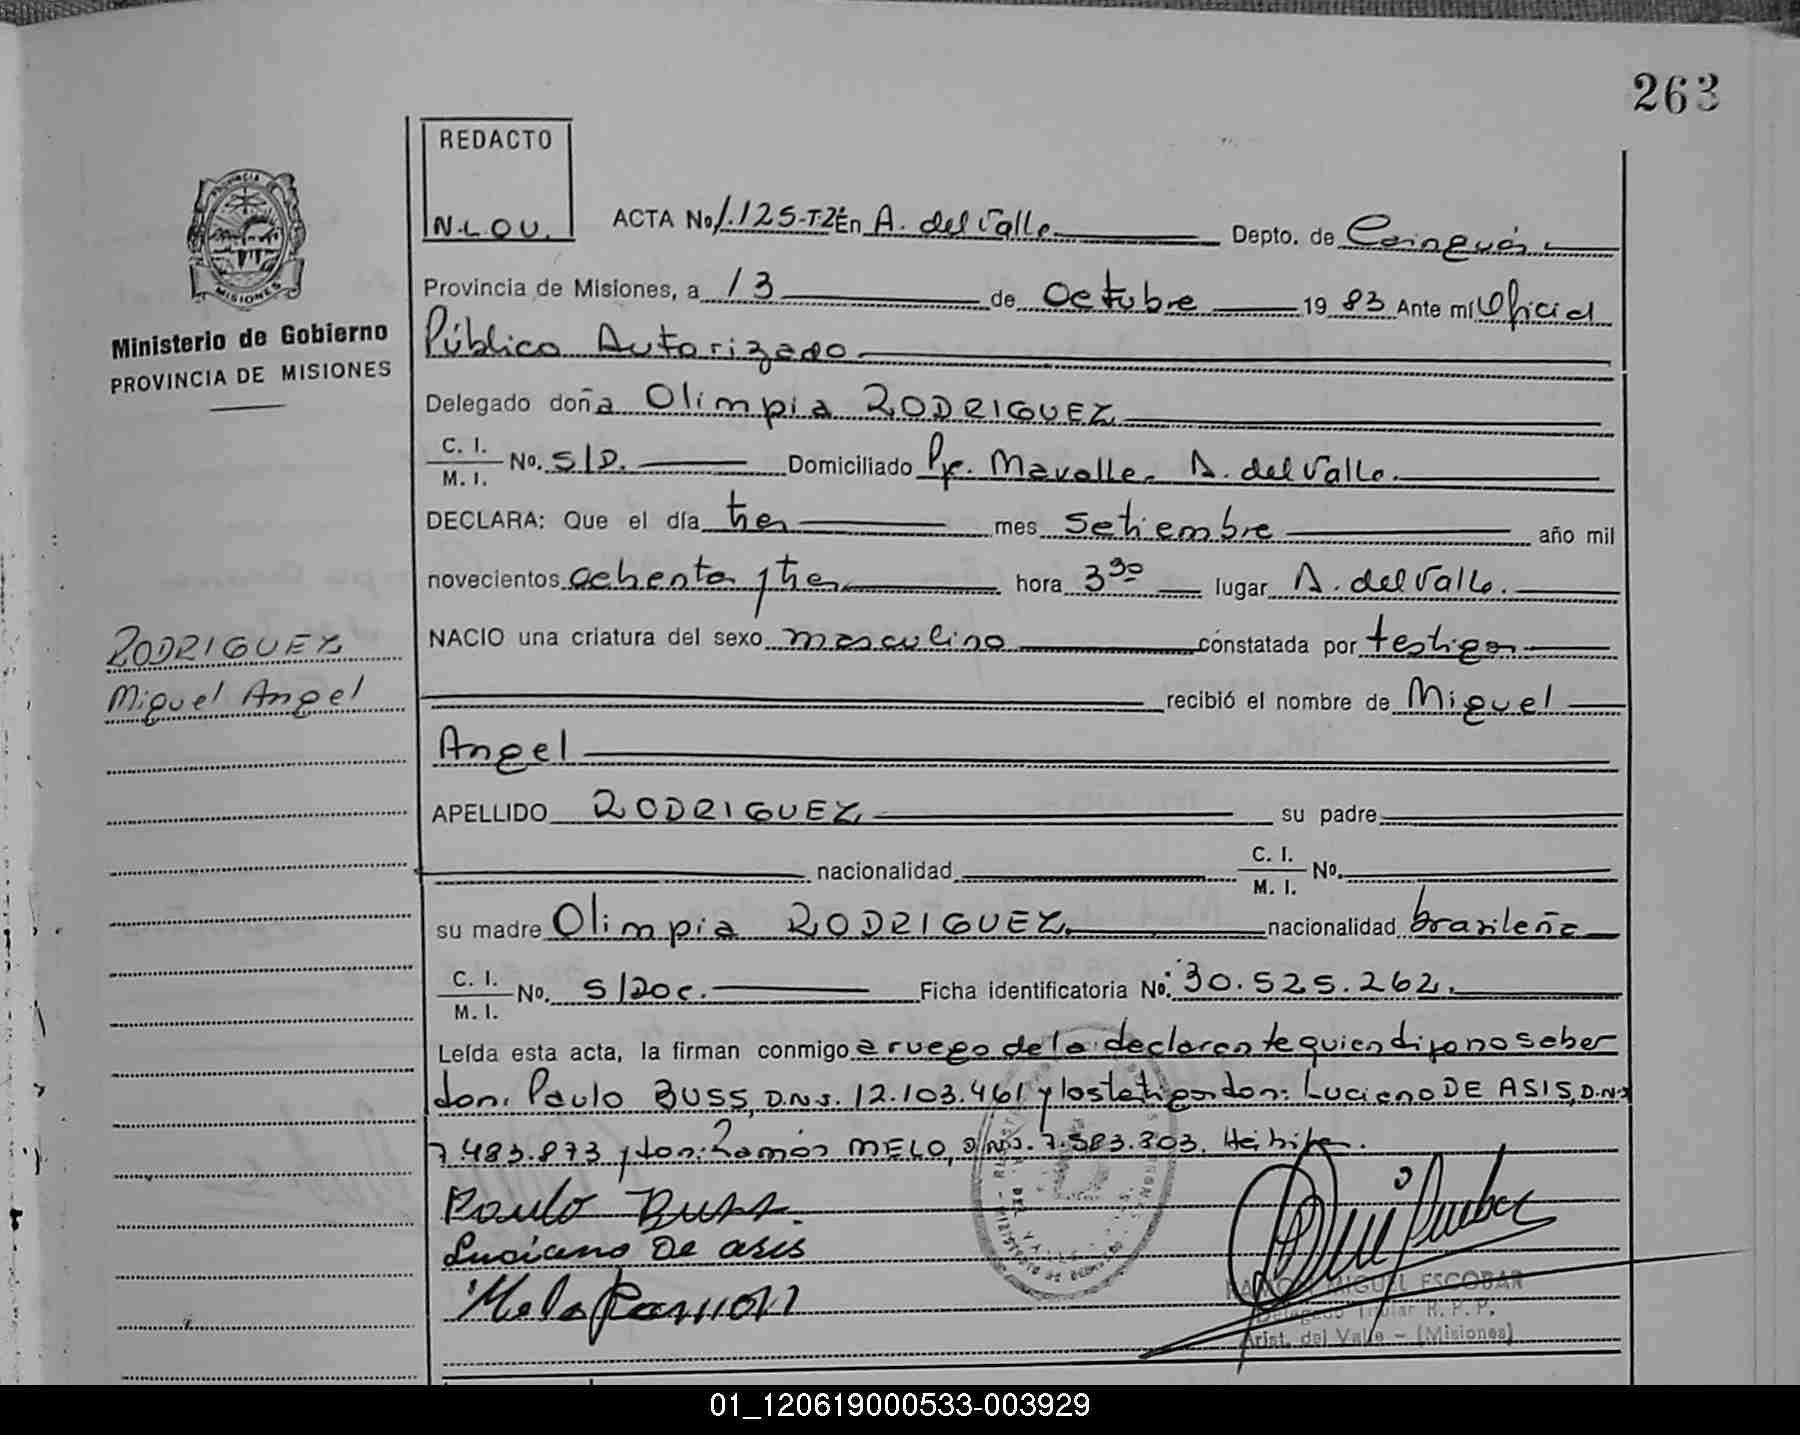 263
REDACTO
N.L.O.U.
ACTA No. 1.125-T2º En A. del Valle Depto. de Cainguás
Provincia de Misiones, a 13 de Octubre 1983 Ante mí Oficial
Público Autorizado
PROVINCIA DE
MISIONES
Ministerio de Gobierno
PROVINCIA DE MISIONES
Delegado doña Olimpia RODRIGUEZ
C. I. / M. I. No. S/D. Domiciliado Pje. Mavalle. A. del Valle.
DECLARA: Que el día tres mes Setiembre año mil
novecientos ochenta y tres hora 3 30 lugar A. del Valle.
NACIO una criatura del sexo masculino constatada por testigos
RODRIGUEZ
Miguel Angel
recibió el nombre de Miguel
Angel
APELLIDO RODRIGUEZ su padre
nacionalidad C. I. / M. I. No.
su madre Olimpia RODRIGUEZ nacionalidad brasileña
C. I. / M. I. No. S/Doc. Ficha identificatoria No: 30.525.262.
Leída esta acta, la firman conmigo a ruego de la declarante quien dijo no saber
don: Paulo BUSS, D.N.I. 12.103.461 y los testigos don: Luciano DE ASIS, D.N.I
7.483.873 y don: Ramón MELO, D.N.I. 7.583.303. Hábiles.
Paulo Buss.
Luciano De asis
Melo Ramon
RAMON MIGUEL ESCOBAR
Delegado Titular R. P. P.
Arist. del Valle - (Misiones)
01_120619000533-003929